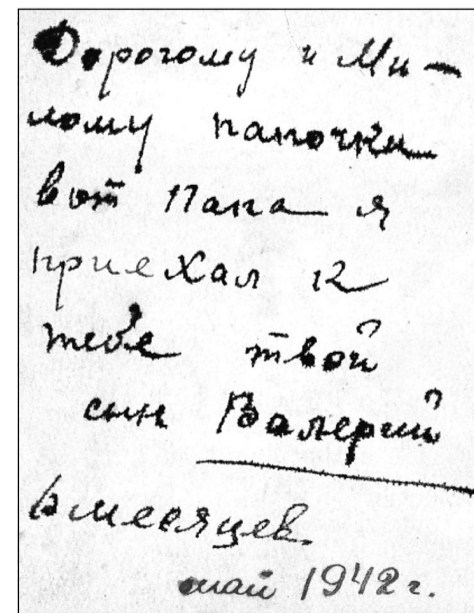 Дорогому и Ми-
лому папочки
вот папа я
приехал к
тебе твой
сын Валерий
6 месяцев
май 1942 г.